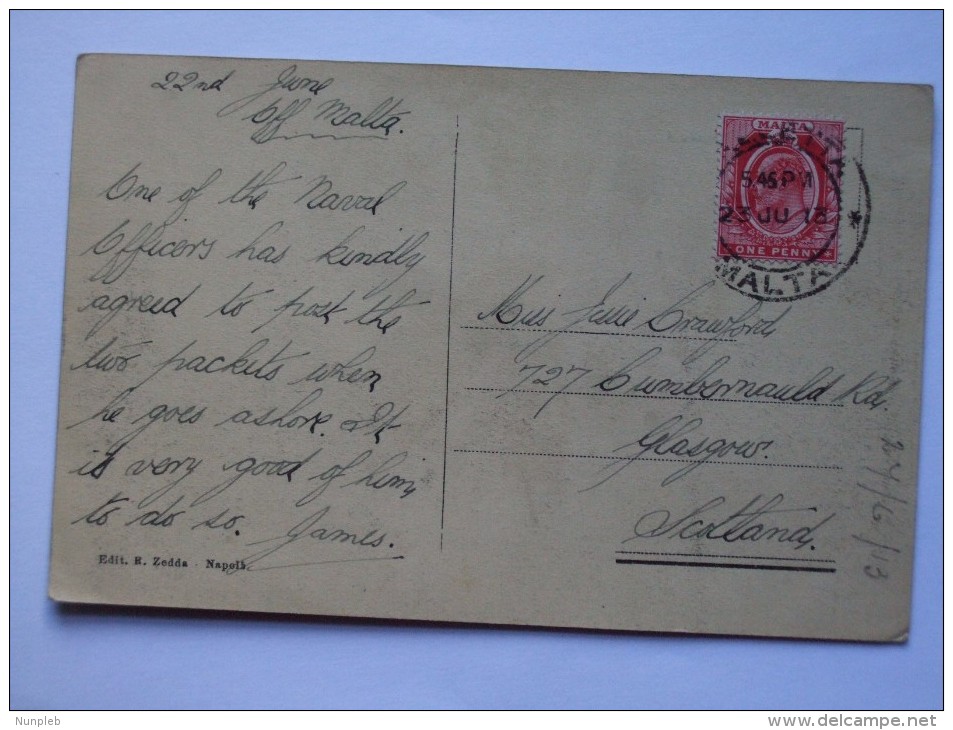 22nd June
Off Malta.
One of the Naval
Officers has kindly
agreed to post the
two packets when
he goes ashore. It
is very good of him
to do so. James.
Edit. R. Zedda - Napoli
MALTA
5.45 PM
23 JU 13
ONE PENNY
MALTA
Miss Crawford,
727 Cumbernauld Rd.
Glasgow.
Scotland.
Nunpleb
www.delcampe.net